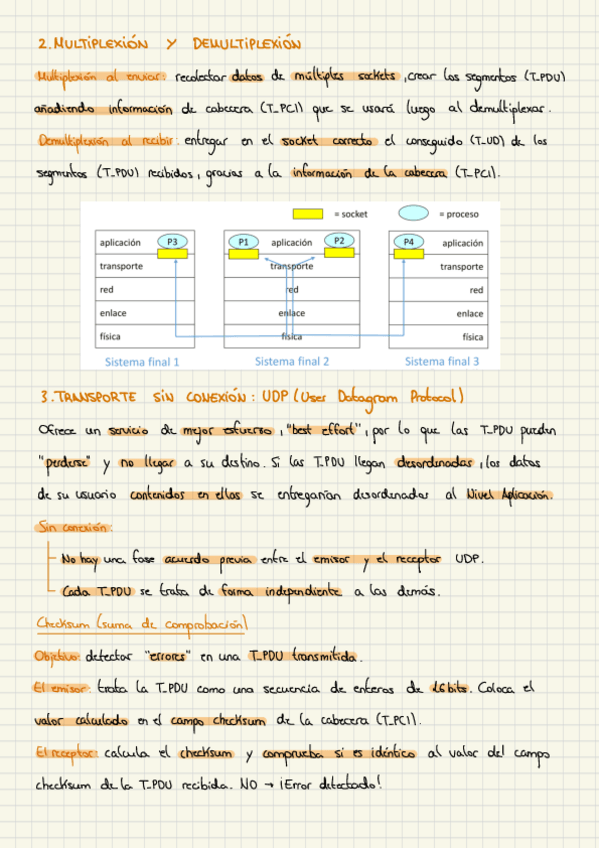 2. MULTIPLEXIÓN Y DEMULTIPLEXIÓN
Multiplexión al enviar: recolectar datos de múltiples sockets, crear los segmentos (T_PDU)
añadiendo información de cabecera (T_PCI) que se usará luego al demultiplexar.
Demultiplexión al recibir: entregar en el socket correcto el conseguido (T_UD) de los
segmentos (T_PDU) recibidos, gracias a la información de la cabecera (T_PCI).
= socket = proceso
aplicación P3 P1 aplicación P2 P4 aplicación
transporte transporte transporte
red red red
enlace enlace enlace
física física física
Sistema final 1 Sistema final 2 Sistema final 3
3. TRANSPORTE SIN CONEXIÓN: UDP (User Datagram Protocol)
Ofrece un servicio de mejor esfuerzo, "best effort", por lo que las T_PDU pueden
"perderse" y no llegar a su destino. Si las T_PDU llegan desordenadas, los datos
de su usuario contenidos en ellas se entregarían desordenados al Nivel Aplicación.
Sin conexión:
No hay una fase acuerdo previa entre el emisor y el receptor UDP.
Cada T_PDU se trata de forma independiente a las demás.
Checksum (suma de comprobación)
Objetivo: detectar "errores" en una T_PDU transmitida.
El emisor: trata la T_PDU como una secuencia de enteros de 16 bits. Coloca el
valor calculado en el campo checksum de la cabecera (T_PCI).
El receptor: calcula el checksum y comprueba si es idéntico al valor del campo
checksum de la T_PDU recibida. NO → ¡Error detectado!